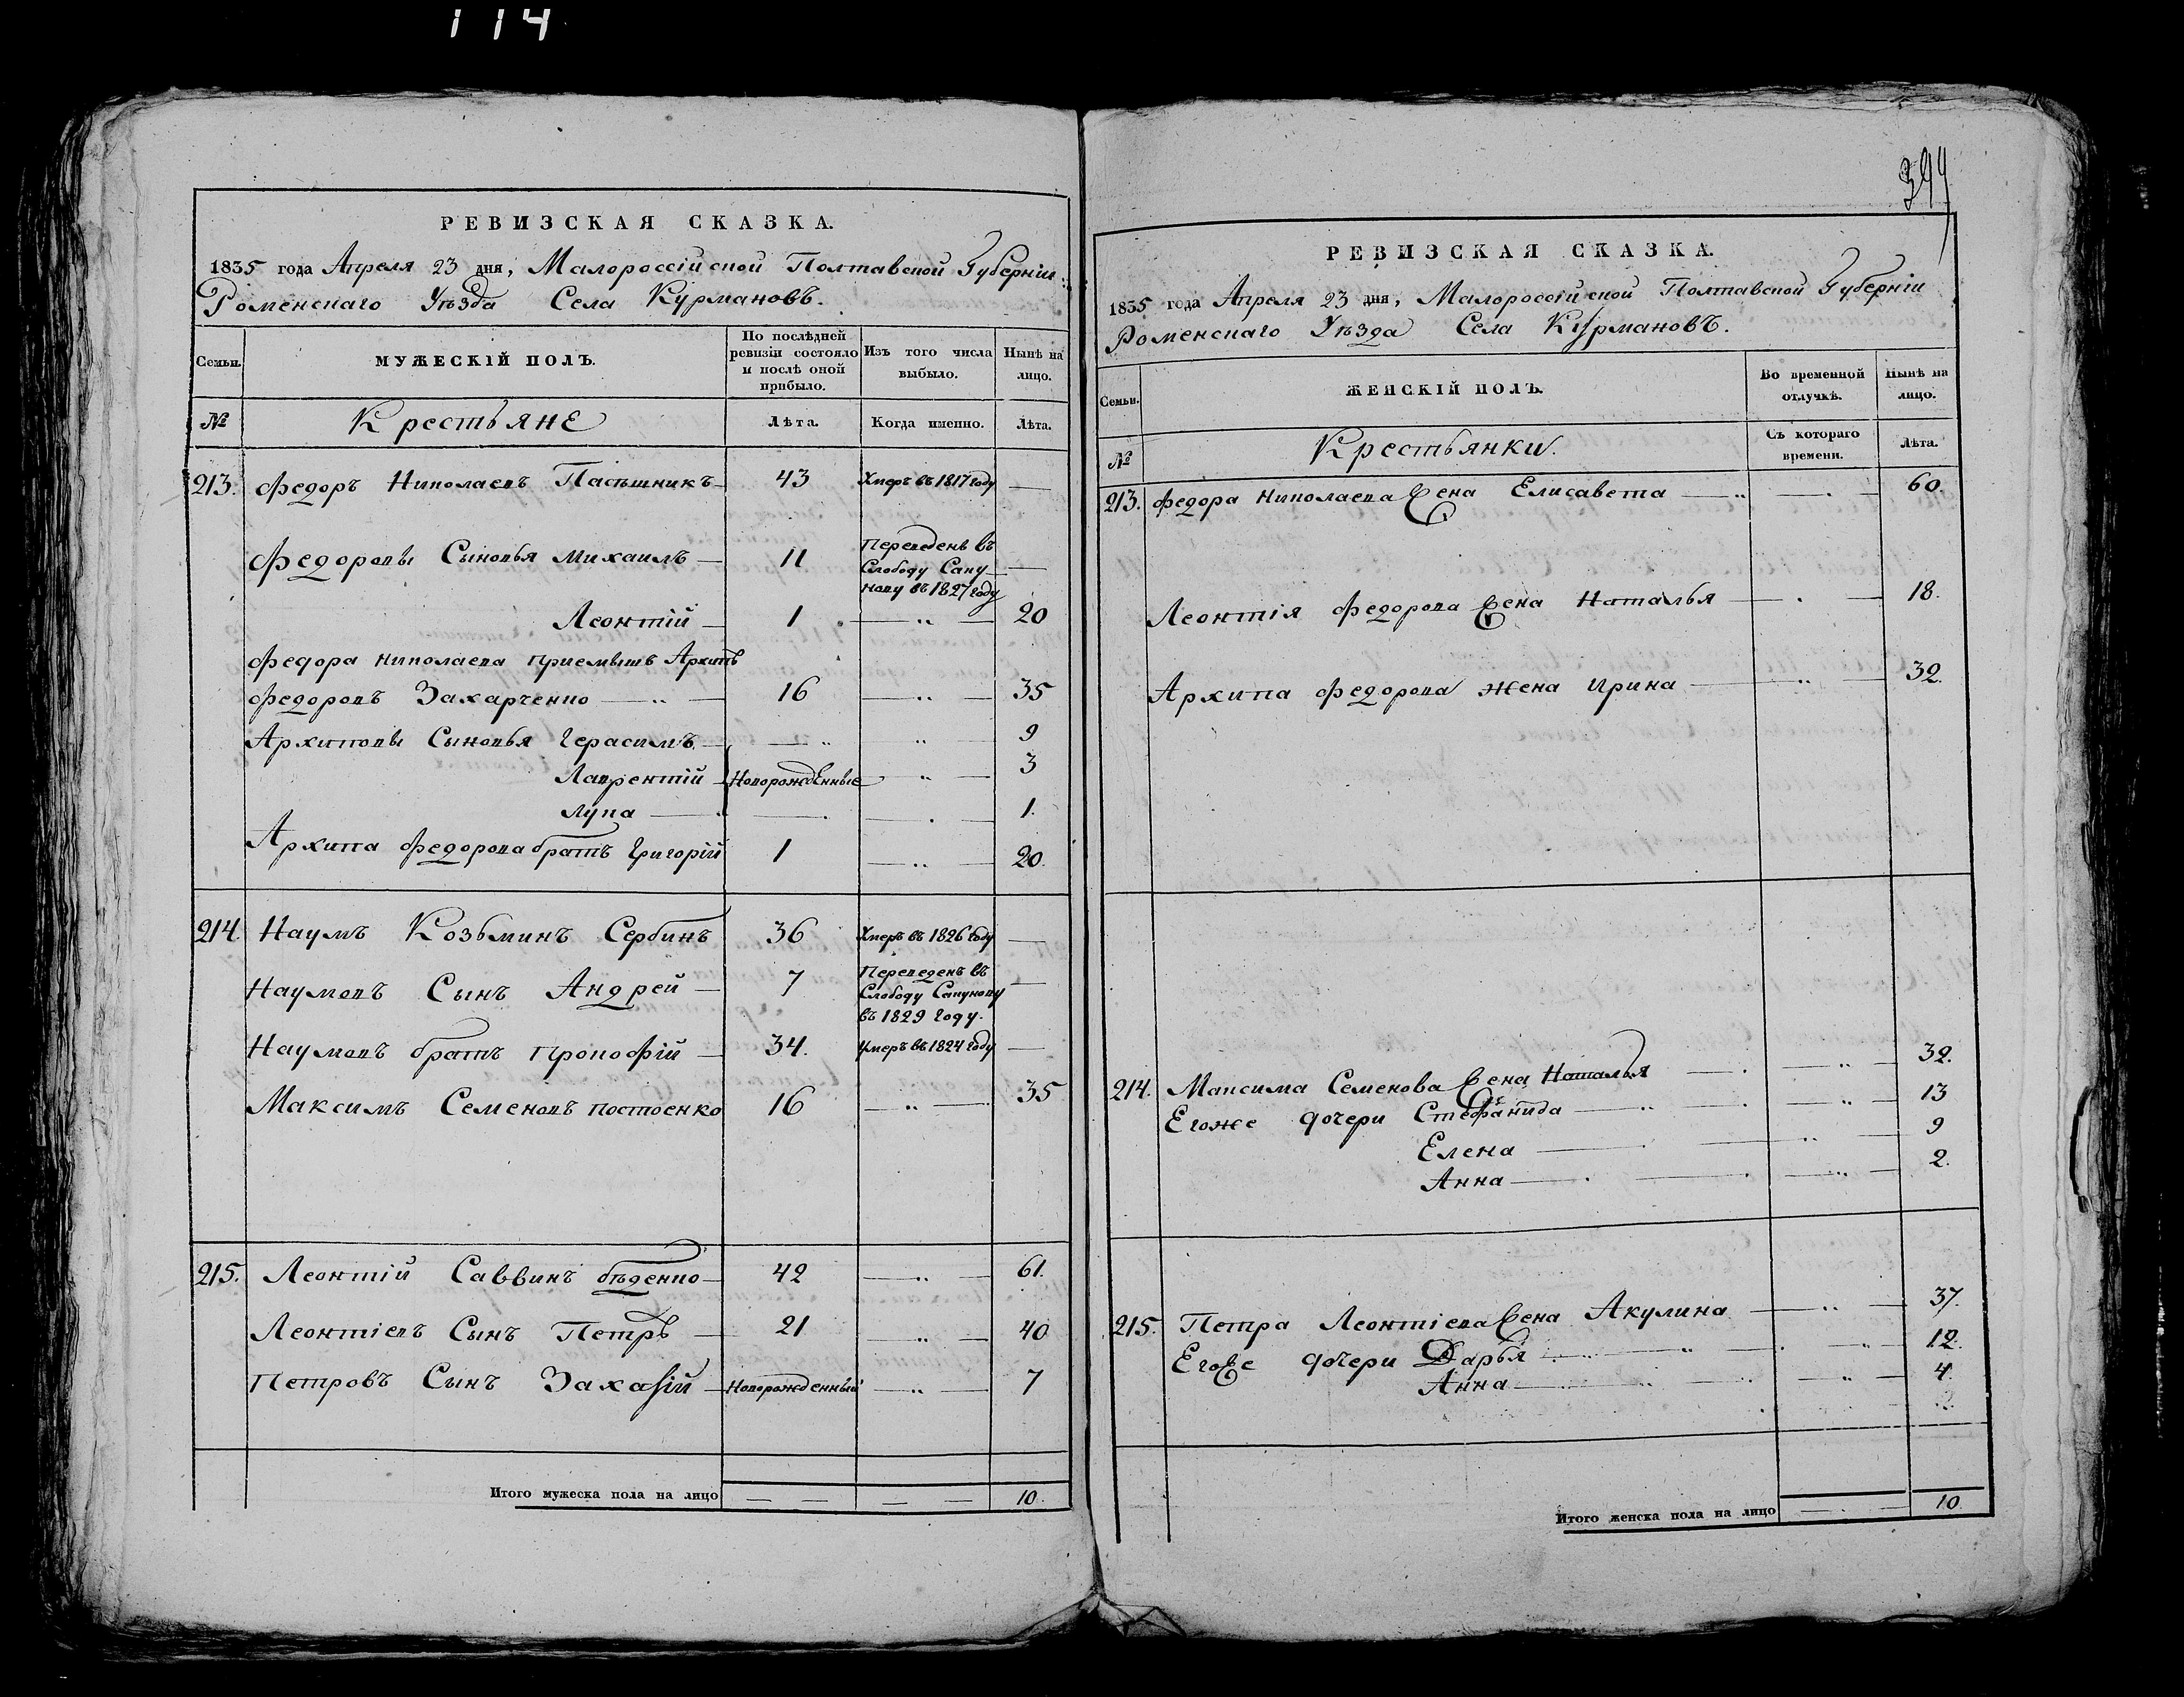 114
РЕВИЗСКАЯ СКАЗКА.
1835 года Апреля 23 дня, Малороссійской Полтавской Губерніи
Роменскаго Уѣзда Села Курмановъ.
Семьи. МУЖЕСКІЙ ПОЛЪ. По послѣдней ревизіи состояло и послѣ оной прибыло. Изъ того числа выбыло. Нынѣ на лицо.
№ Крестьяне Лѣта. Когда именно. Лѣта.
213. Федоръ Николаевъ Пасѣшникъ 43 Умеръ въ 1817 году —
Федоровы Сыновья Михаилъ — 11 Переведенъ въ Слободу Сапунову въ 1827 году —
Леонтій — 1 — 20
Федора Николаева приемышъ Архипъ
Федоровъ Захарченко — 16 — 35
Архиповы Сыновья Герасимъ — 9
Лаврентій Новорожденные — 3
Лука — 1.
Архипа Федорова братъ Григорій 1 — 20.
214. Наумъ Козьминъ Сербинъ 36 Умеръ въ 1826 году —
Наумовъ Сынъ Андрей — 7 Переведенъ въ Слободу Сапунову въ 1829 году. —
Наумовъ братъ Прокофій — 34. Умеръ въ 1824 году —
Максимъ Семеновъ постоенко 16 — 35
215. Леонтій Саввинъ бѣденко — 42 — 61.
Леонтіевъ Сынъ Петръ — 21 — 40
Петровъ Сынъ Захарій — Новорожденный — 7
Итого мужеска пола на лицо — — — — 10.
РЕВИЗСКАЯ СКАЗКА.
1835 года Апреля 23 дня, Малороссійской Полтавской Губерніи
Роменскаго Уѣзда Села Курмановъ.
Семьи. ЖЕНСКІЙ ПОЛЪ. Во временной отлучкѣ. Нынѣ на лицо.
№ Крестьянки. Съ котораго времени. Лѣта.
213. Федора Николаева Жена Елисавета — 60.
Леонтія Федорова Жена Наталья — 18.
Архипа Федорова жена Ирина — 32.
214. Максима Семенова Жена Наталья — 32.
Егоже дочери Стефанида — 13
Елена — 9
Анна — 2.
215. Петра Леонтіева Жена Акулина — 37.
Егоже дочери Дарья — 12.
Анна — 4.
Итого женска пола на лицо — 10.